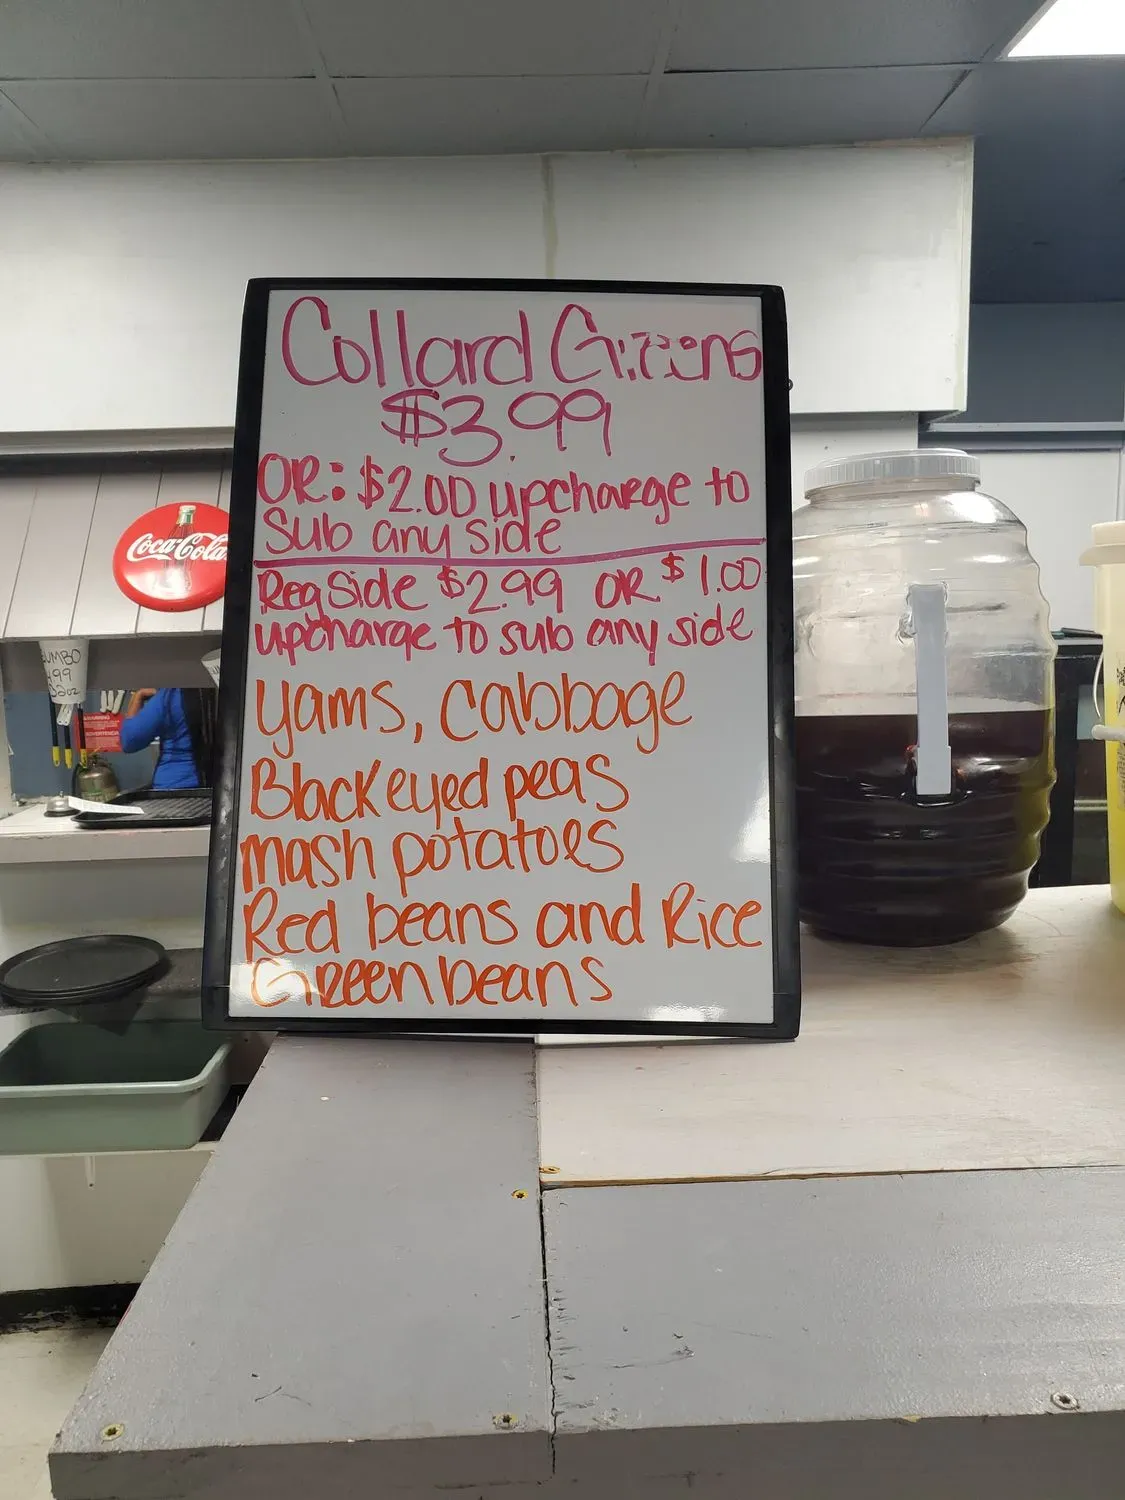 Collard Greens
$3.99
OR: $2.00 upcharge to
Sub any side
Reg Side $2.99 OR $1.00
upcharge to sub any side
Yams, Cabbage
Black eyed peas
mash potatoes
Red beans and Rice
Green beans
Coca-Cola
WARNING